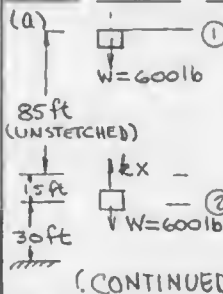 (a)
①
W=600lb
85ft
(UNSTETCHED)
kx
15ft
②
W=600lb
30ft
(CONTINUED